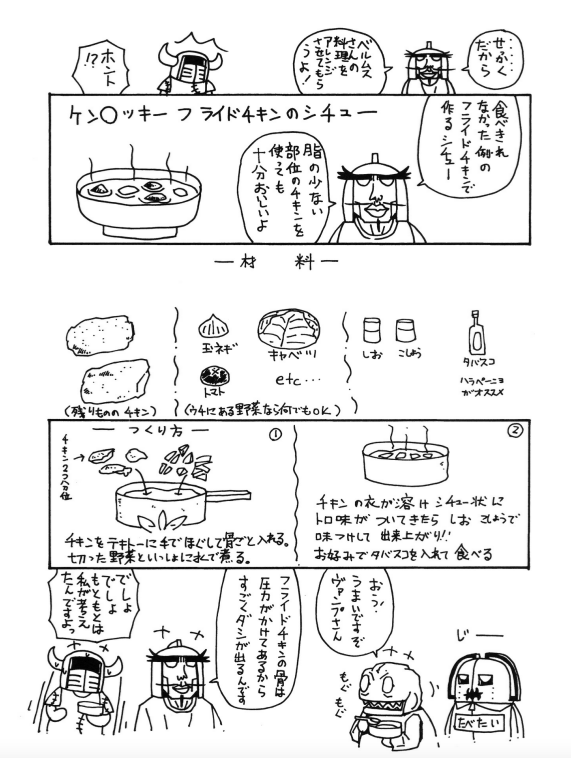 せっ・・・かく
だから
ベルムス
さんの
料理を
アレンジ
させてもら
うよ!
ホント
!?
ケン〇ッキーフライドチキンのシチュー
食べきれ
なかった例の
フライドチキンで
作るシチュー
脂の少ない
部位のチキンを
使っても
十分おいしいよ
―材 料―
玉ネギ
キャベツ
しお
こしょう
タバスコ
トマト
etc…
ハラペーニョ
がオススメ
(残りもののチキン)
(ウチにある野菜なら何でもOK)
―つくり方―
①
チキン2つ分位
チキンをテキトーに手でほぐして骨ごと入れる。
切った野菜といっしょに水で煮る。
②
チキンの衣が溶けシチュー状に
トロ味がついてきたらしおこしょうで
味つけして出来上がり!!
お好みでタバスコを入れて食べる
おっ!
うまいですぞ
ヴァンプさん
フライドチキンの骨は
圧力がかけてあるから
すごくダシが出るんです
でしょ
でしょ
もともとは
私が考え
たんですよっ
もぐ
もぐ
じーー
たべたい